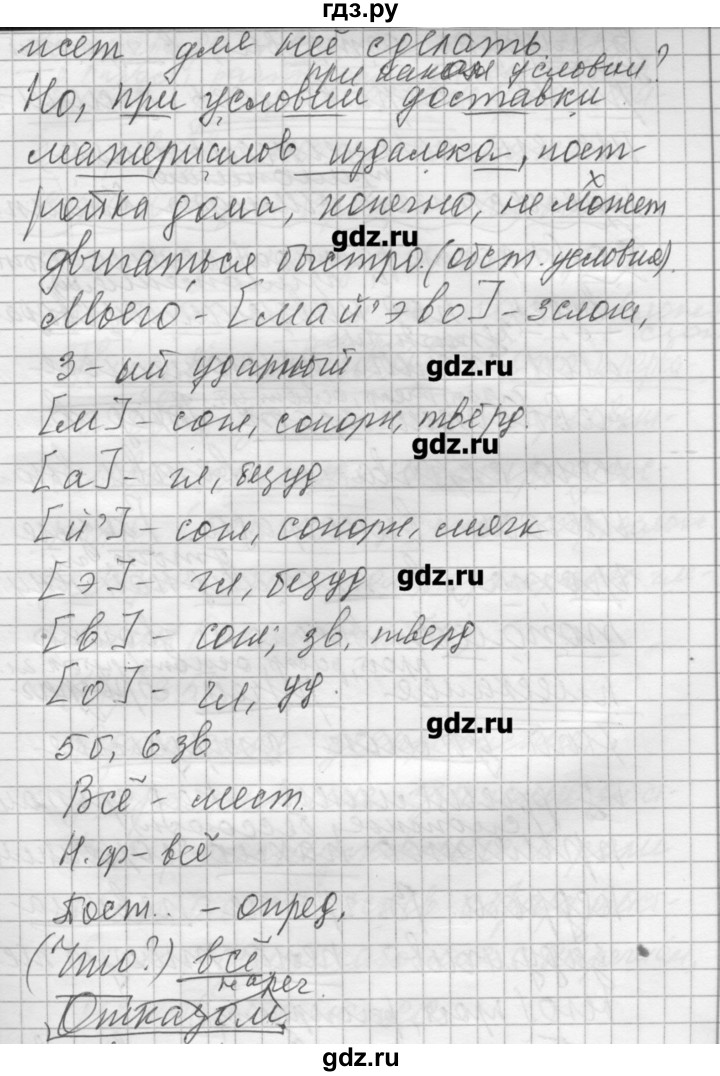 гдз.ру
жет для неё сделать.
при каком условии?
Но, при условии доставки
материалов издалека, пост-
ройка дома, конечно, не может
gdz.ru
двигаться быстро. (обст. условия).
Моего - [май'эво] - 3 слога,
3-ий ударный
gdz.ru
[м] - согл, сонорн, твёрд.
gdz.ru
[а] - гл, безуд
[й'] - согл, сонорн, мягк
[э] - гл, безуд
gdz.ru
[в] - согл, зв, тверд
[о] - гл, уд.
gdz.ru
5 б, 6 зв
Всё - мест.
Н.ф - всё
Пост. - опред,
(Что?) всё
нареч.
Отказом
gdz.ru
gdz.ru